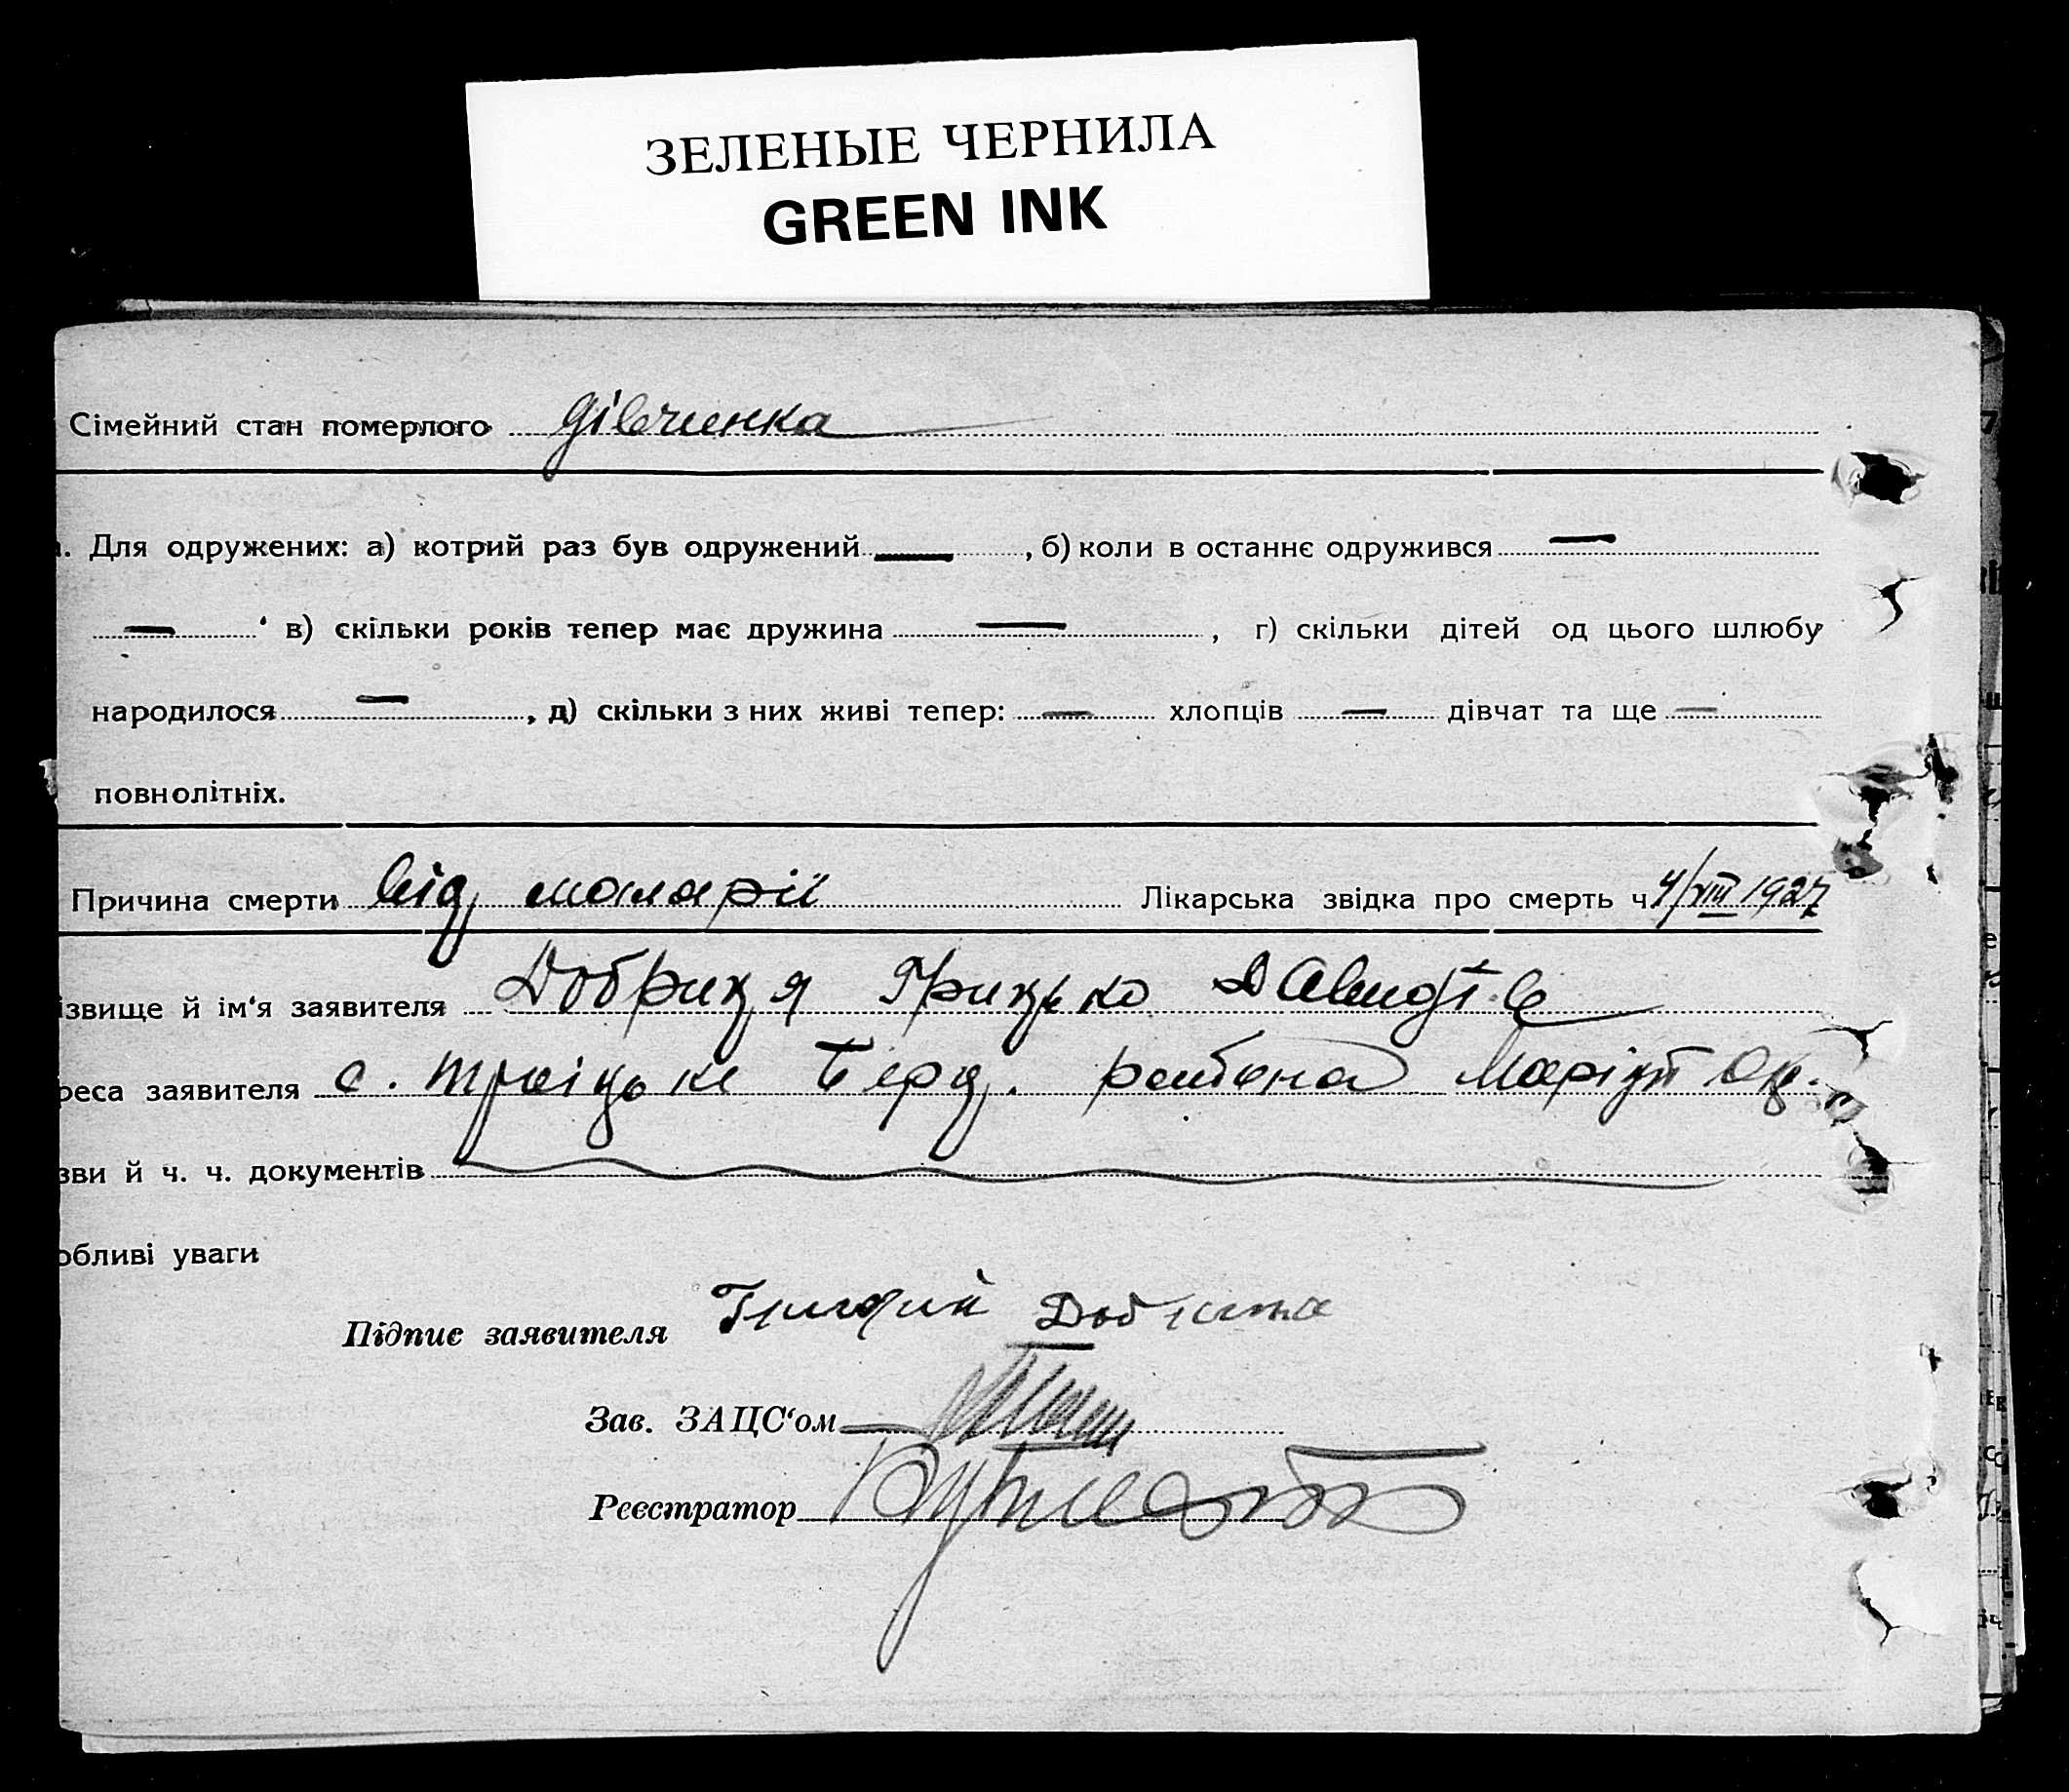 ЗЕЛЕНЫЕ ЧЕРНИЛА
GREEN INK
Сімейний стан померлого дівчинка
Для одружених: а) котрий раз був одружений — , б) коли в останнє одружився —
— ‘ в) скільки років тепер має дружина — , г) скільки дітей од цього шлюбу
народилося — , д) скільки з них живі тепер: — хлопців — дівчат та ще —
повнолітніх.
Причина смерти від малярії Лікарська звідка про смерть ч. 4/VIII 1927
ізвище й ім‘я заявителя Добриця Грицько Давидів
реса заявителя с. Троіцьке Берд. района Маріуп Ок.
зви й ч. ч. документів
обливі уваги
Підпис заявителя Григорий
Зав. ЗАЦС‘ом
Реєстратор